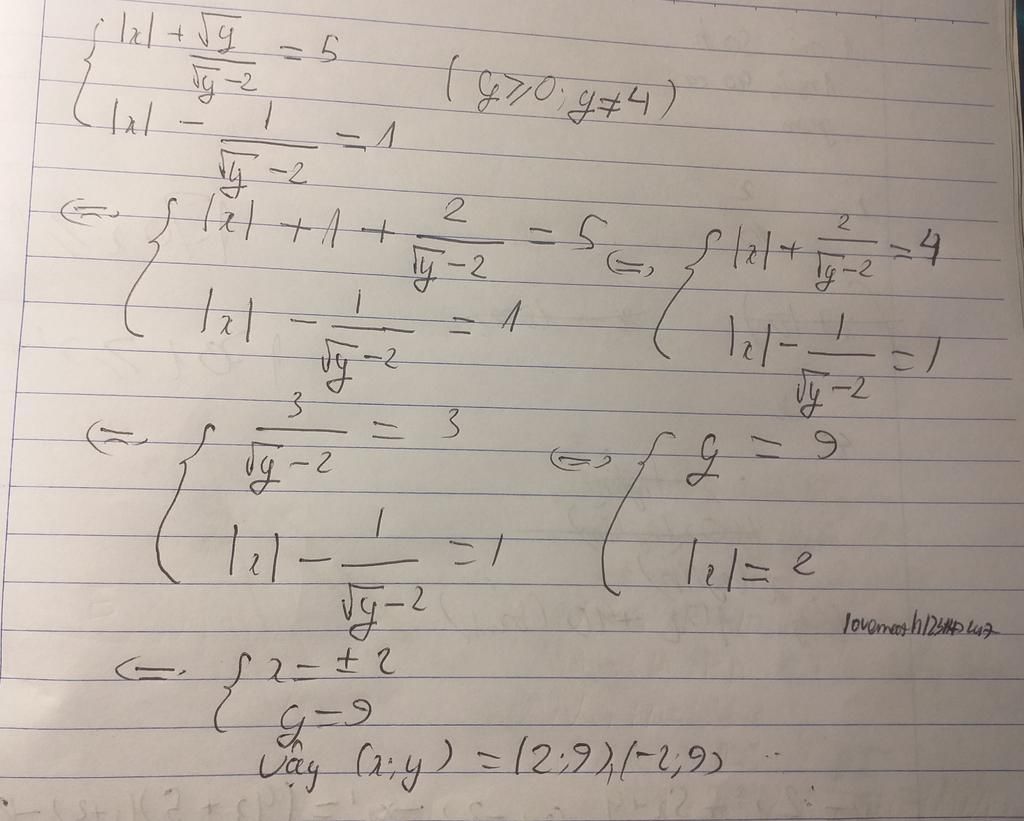 { |x| + √y/(√y-2) = 5
|x| - 1/(√y-2) = 1 (y⩾0; y≠4)
<=> { |x| + 1 + 2/(√y-2) = 5
|x| - 1/(√y-2) = 1
<=> { |x| + 2/(√y-2) = 4
|x| - 1/(√y-2) = 1
<=> { 3/(√y-2) = 3
|x| - 1/(√y-2) = 1
<=> { y = 9
|x| = 2
<=> { x = ±2
y = 9
Vậy (x;y) = (2;9),(-2;9)